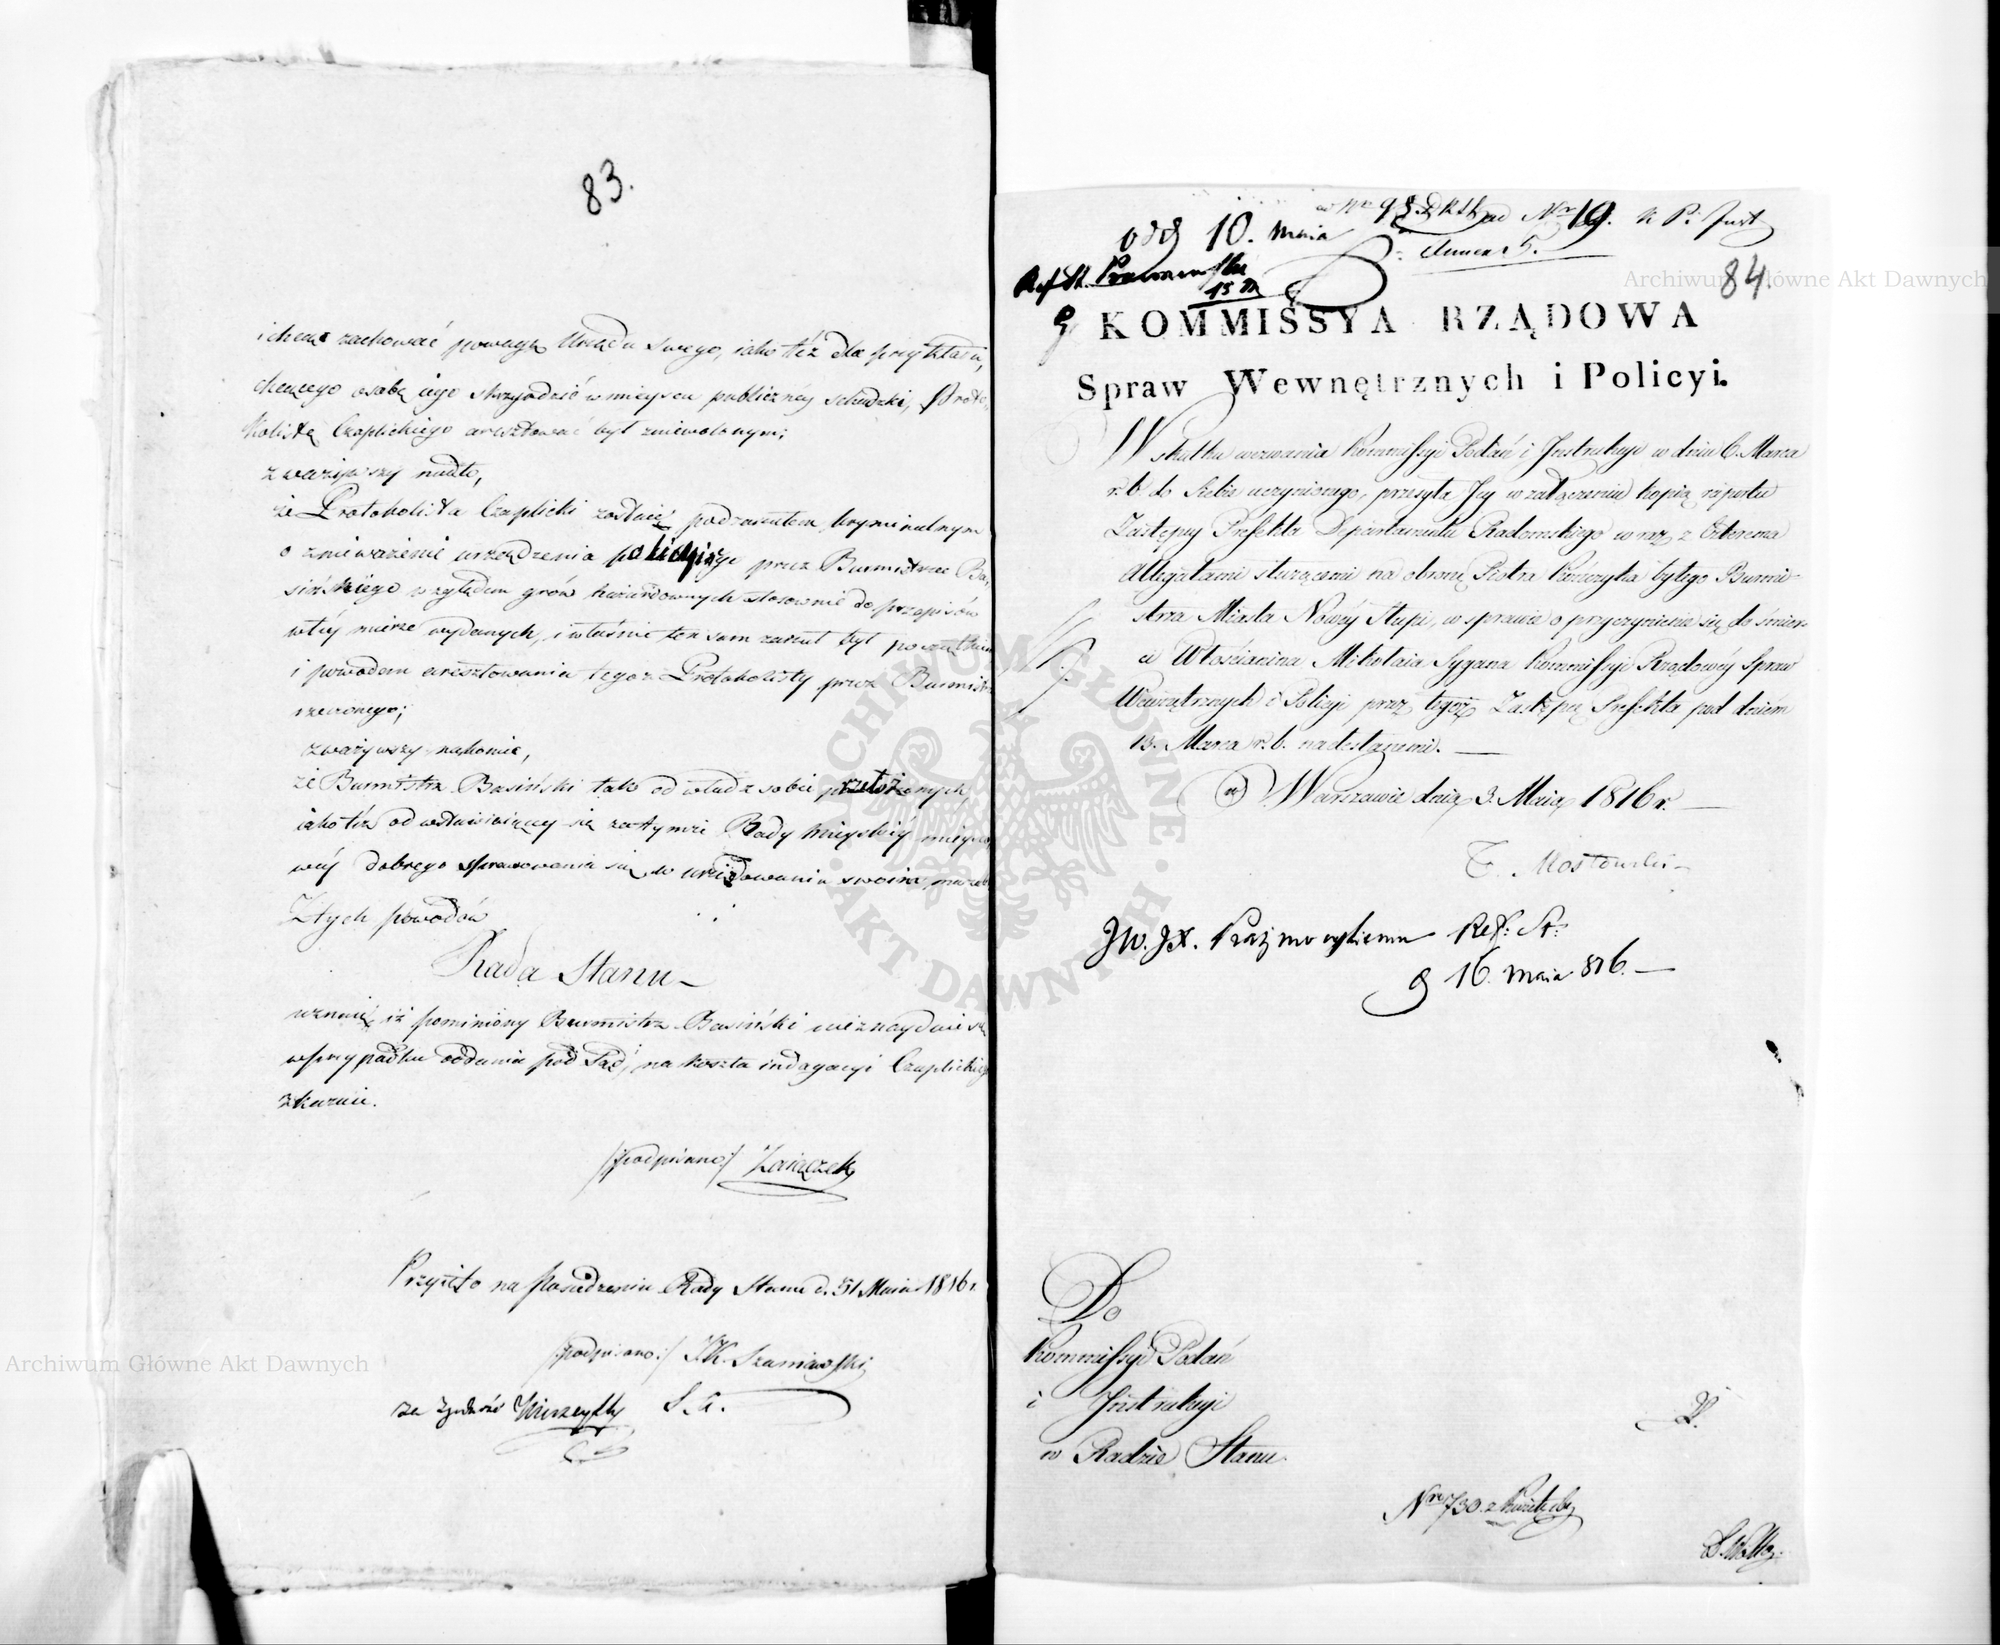 83.
i chcąc zachować powagę Urzędu swego, iako też dla przykładu,
chcącego osobę iego skrzywdzić w mieyscu publiczney schadzki, Proto-
kolistę Czaplickiego aresztować był zniewolonym;
zważywszy nadto,
że Protokolista Czaplicki został pod zarzutem kryminalnym
o znieważenie urządzenia policyinego przez Burmistrza Ba-
sińskiego względem grów hazardownych stosownie do przepisów
w tey mierze wydanych, i właśnie ten sam zarzut był początkiem
i powodem aresztowania tegoż Protokolisty przez Burmistrza
rzeczonego;
zważywszy nakoniec,
że Burmistrz Basiński tak od władz sobie przełożonych,
iako też od wstawiaiącey się za tymże Rady Mieyskiey mieysco-
wey dobrego sprawowania się w urzędowaniu swoim
Z tych powodów
Rada Stanu
uznaie, iż pominiony Burmistrz Basiński nie znayduie się
w przypadku oddania pod Sąd, na koszta indagacyi Czaplickiego
skazuie.
/podpisano:/ Zaiączek
Przyięto na Posiedzeniu Rady Stanu d. 31 Maia 1816 r.
/podpisano:/ J. K. Szaniawski
za zgodność S. a.
ad Nr 19. K P. Inst
odd 10. Maia
Annex 5.
Ref St. Prazmowski
15 M
84.
KOMMISSYA RZĄDOWA
Spraw Wewnętrznych i Policyi.
W skutku wezwania Kommissyi Podań i Instrukcyi w dniu 6. Marca
r. b. do Siebie uczynionego, przesyła Jey w załączeniu kopią raportu
Zastępcy Prefekta Departamentu Radomskiego wraz z czterema
Allegatami służącemi na obronę Piotra Kończyka byłego Burmi-
strza Miasta Nowéy Słupi, w sprawie o przyczynienie się do śmier-
ci Włościanina Mikołaia Sygana Kommissyi Rządowéy Spraw
Wewnętrznych i Policyi przez tegoż Zastępcę Prefekta pod dniem
13. Marca r. b. nadesłanemi.
w Warszawie dnia 3. Maia 1816 r.
T. Mostowski
JW. JX. Prażmowskiemu Ref: St:
d 16. Maia 816.
Do
Kommissyi Podań
i Instrukcyi
w Radzie Stanu.
Nro 730.
Archiwum Główne Akt Dawnych
Archiwum Główne Akt Dawnych
ARCHIWUM GŁÓWNE · AKT DAWNYCH ·